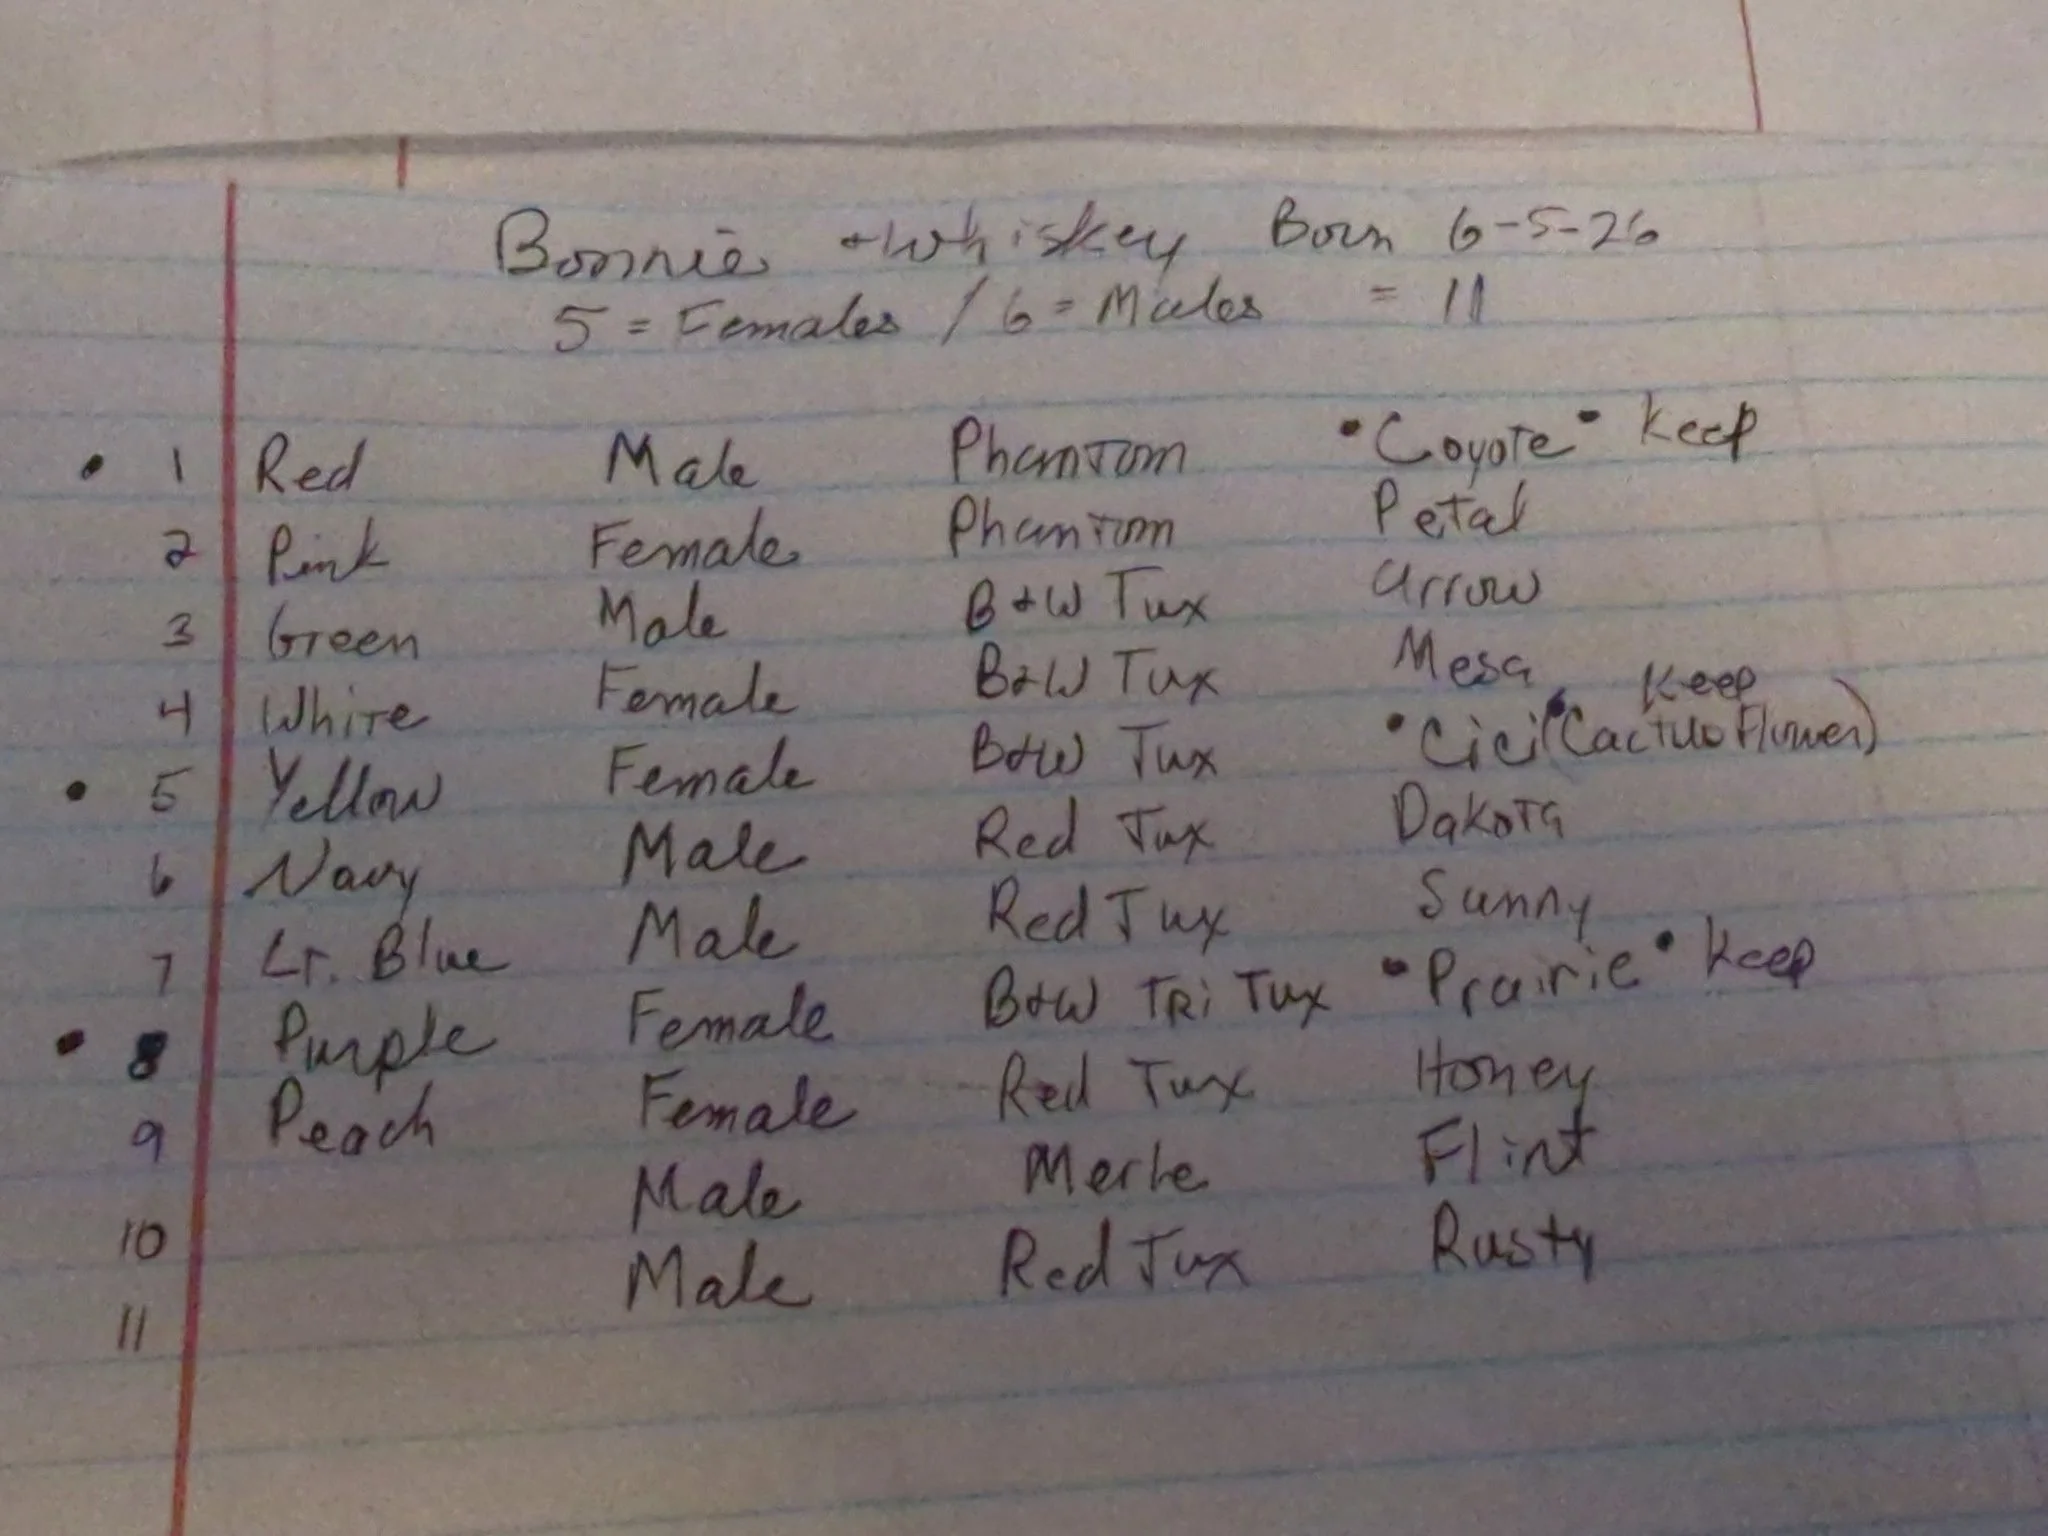 Bonnie + Whiskey Born 6-5-26
5 = Females / 6 = Males = 11
• 1 Red Male Phantom •Coyote• Keep
2 Pink Female Phantom Petal
3 Green Male B+W Tux Arrow
4 White Female B+W Tux Mesa
Keep
• 5 Yellow Female B+W Tux •Cici• (Cactus Flower)
6 Navy Male Red Tux Dakota
7 Lt. Blue Male Red Tux Sunny
• 8 Purple Female B+W TRi Tux •Prairie• Keep
9 Peach Female Red Tux Honey
10 Male Merle Flint
11 Male Red Tux Rusty